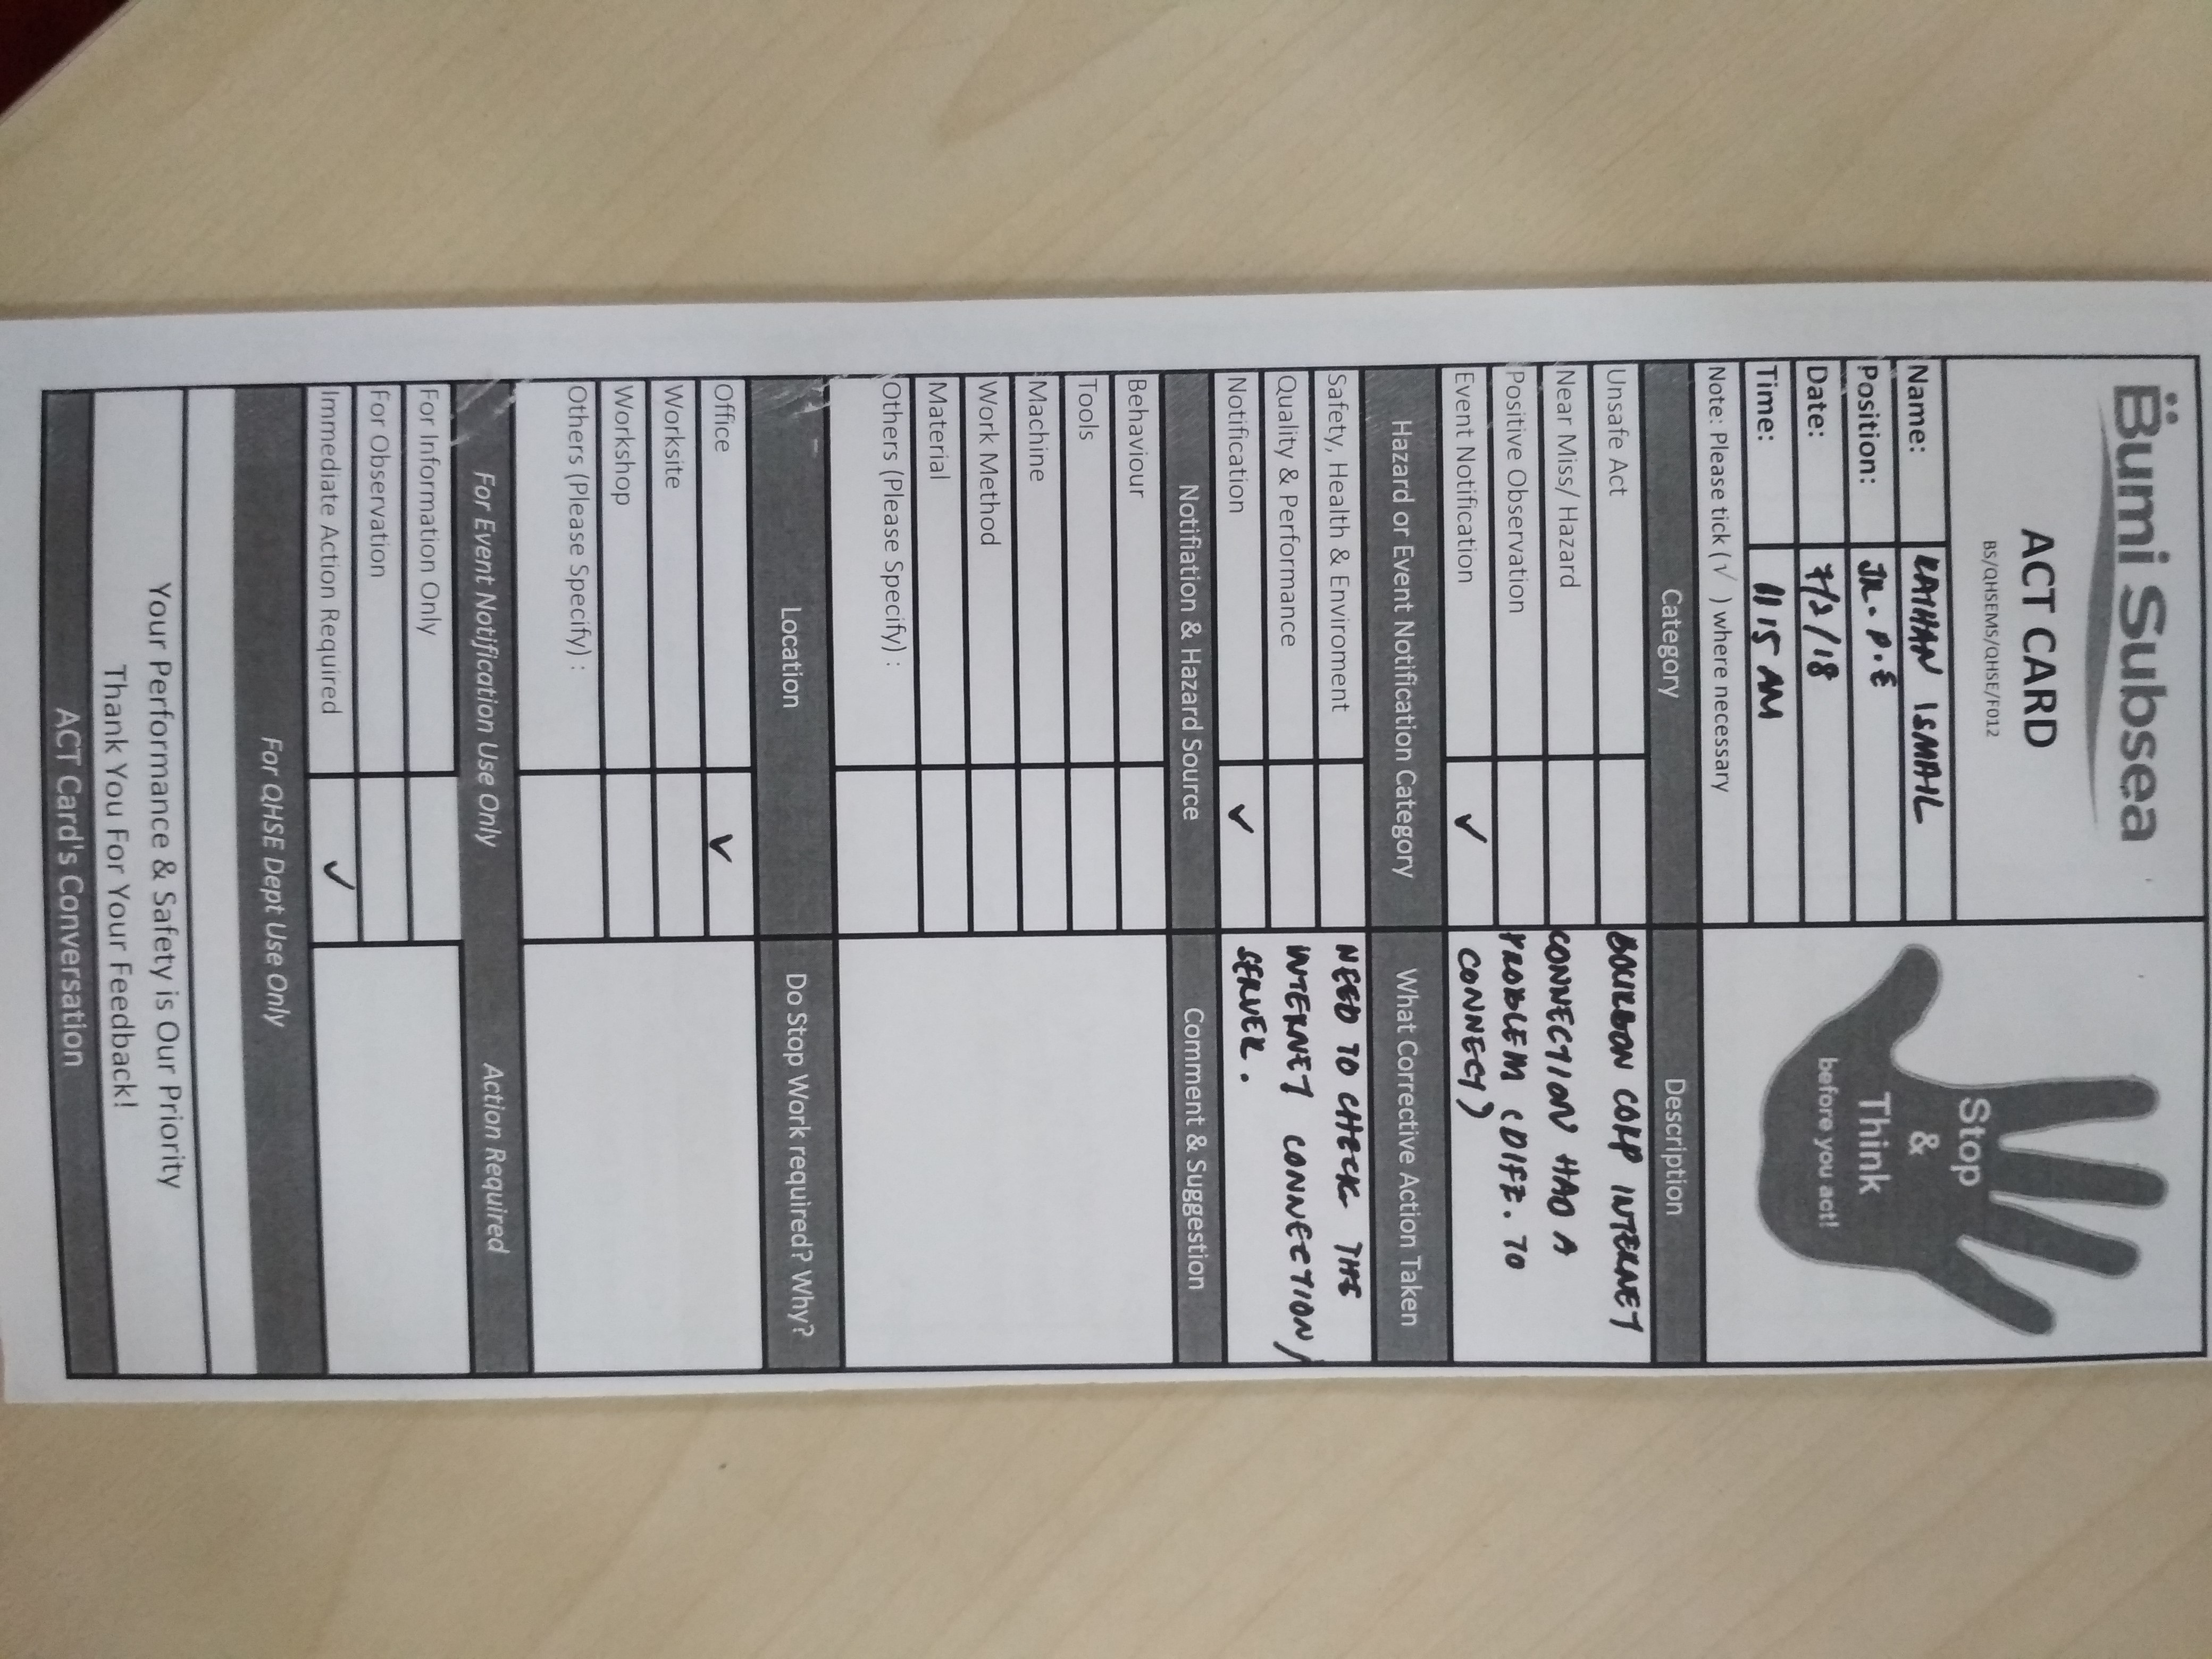 Bumi Subsea
ACT CARD
BS/QHSEMS/QHSE/F012
Stop
&
Think
before you act!
Name: RAIHAN ISMAIL
Position: JR. P.E
Date: 7/2/18
Time: 11 15 AM
Note: Please tick (√ ) where necessary
Category Description
Unsafe Act
Near Miss/ Hazard
Positive Observation
Event Notification ✓
BOURBON COMP INTERNET
CONNECTION HAD A
PROBLEM (DIFF. TO
CONNECT)
Hazard or Event Notification Category What Corrective Action Taken
Safety, Health & Enviroment
Quality & Performance
Notification ✓
NEED TO CHECK THE
INTERNET CONNECTION/
SERVER.
Notifiation & Hazard Source Comment & Suggestion
Behaviour
Tools
Machine
Work Method
Material
Others (Please Specify) :
Location Do Stop Work required? Why?
Office ✓
Worksite
Workshop
Others (Please Specify) :
For Event Notification Use Only Action Required
For Information Only
For Observation
Immediate Action Required ✓
For QHSE Dept Use Only
Your Performance & Safety is Our Priority
Thank You For Your Feedback!
ACT Card's Conversation